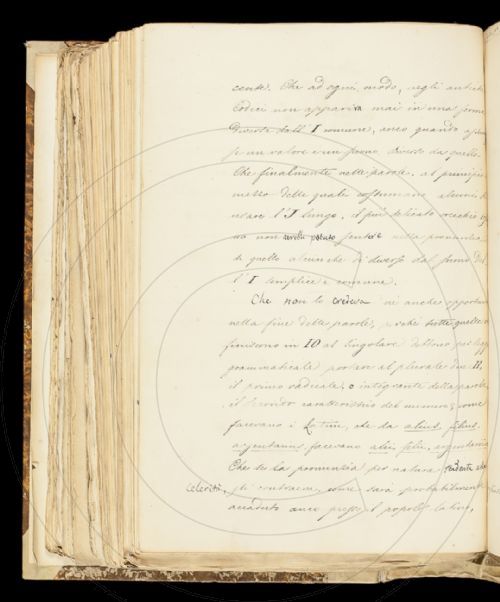 cente. Che ad ogni modo, negli antichi
Codici non appariva mai in una forma
diversa dall'I comune, anco quando
se un valore e un suono diverso da quello.
Che finalmente nelle parole, al principio
mezzo delle quali costumano alcuni d'
usare l'J lungo, il più delicato orecchio
non avrebbe potuto sentire nella pronunzia
di quello alcunche di diverso dal suono del
l'I semplice e comune.
Che non lo credeva nè anche opportuno
nella fine delle parole, perchè tutte quelle
finiscono in IO al singolare debbono per legge
grammaticale portare al plurale due II,
il primo radicale, e integrante della parola
il secondo caratteristico del numero; come
facevano i Latini, che da alius, filius,
argentarius, facevano alii, filii, argentarii
Che se la pronunzia per natura tendente alla
celerità, gli contraeva, come sarà probabilmente
accaduto anco presso il popolo latino,